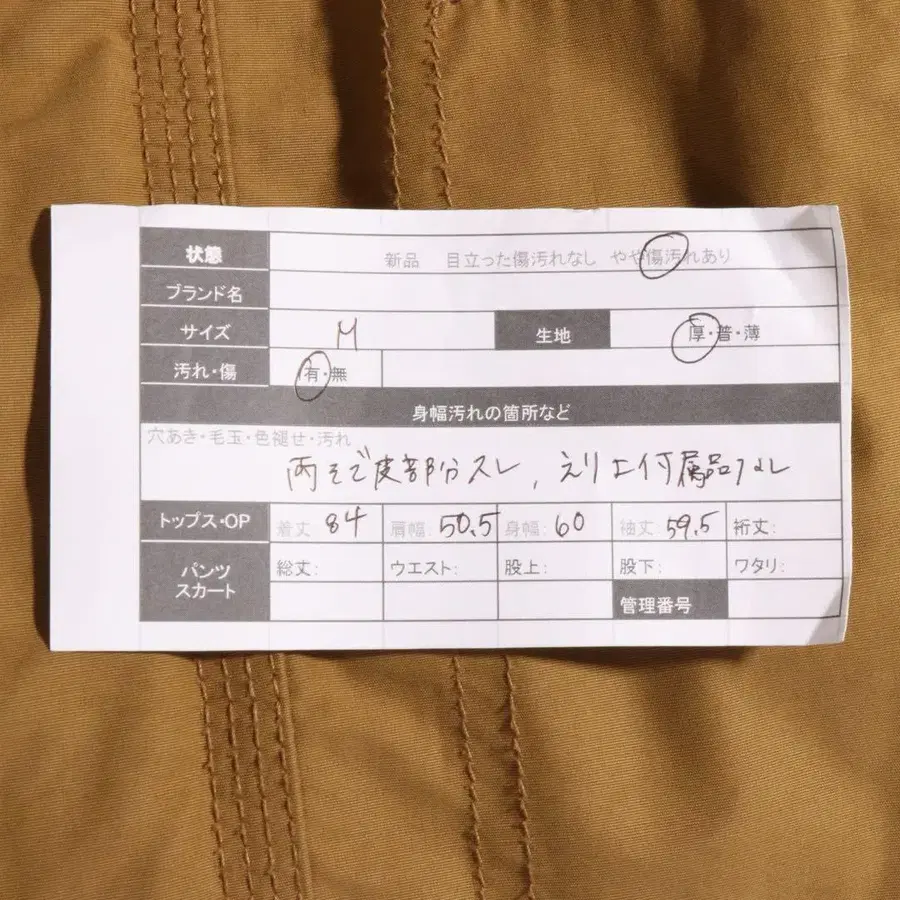 状態 新品 目立った傷汚れなし やや傷汚れあり
ブランド名
サイズ M 生地 厚・普・薄
汚れ・傷 有・無
身幅汚れの箇所など
穴あき・毛玉・色褪せ・汚れ
両そで皮部分スレ、えり上付属品なし
トップス・OP 着丈 84 肩幅: 50.5 身幅: 60 袖丈: 59.5 裄丈:
パンツ 総丈: ウエスト: 股上: 股下: ワタリ:
スカート 管理番号